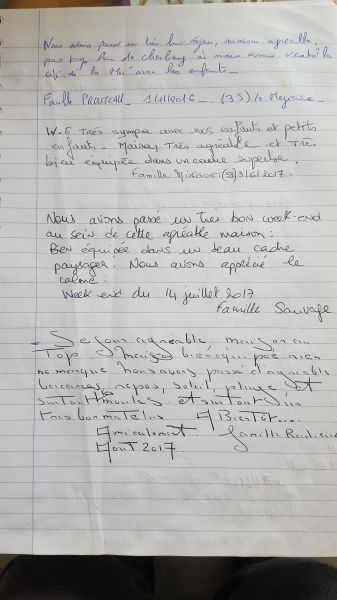 Nous avons passé un très bon séjour, maison agréable,
pas trop loin de cherbourg où nous avons visité la
cité de la Mer avec les enfants.
Famille 1/11/2016 - (35)
W.E. Très sympa avec nos enfants et petits
enfants. Maison Très agréable et Très
bien équipée dans un cadre superbe.
Famille (53) 3/6/2017.
Nous avons passé un très bon week-end
au sein de cette agréable maison.
Bien équipée dans un beau cadre
paysager. Nous avons apprécié le
calme.
Week end du 14 juillet 2017
Famille Sauvage
- Séjour agréable, maison au
Top. bien équipée rien
ne manque nous avons passé d'agréable
vacances, repos, soleil, plage et
surtout les moules. et surtout un
très bon matelas A Bientôt...
Amicalement. famille
Août 2017.